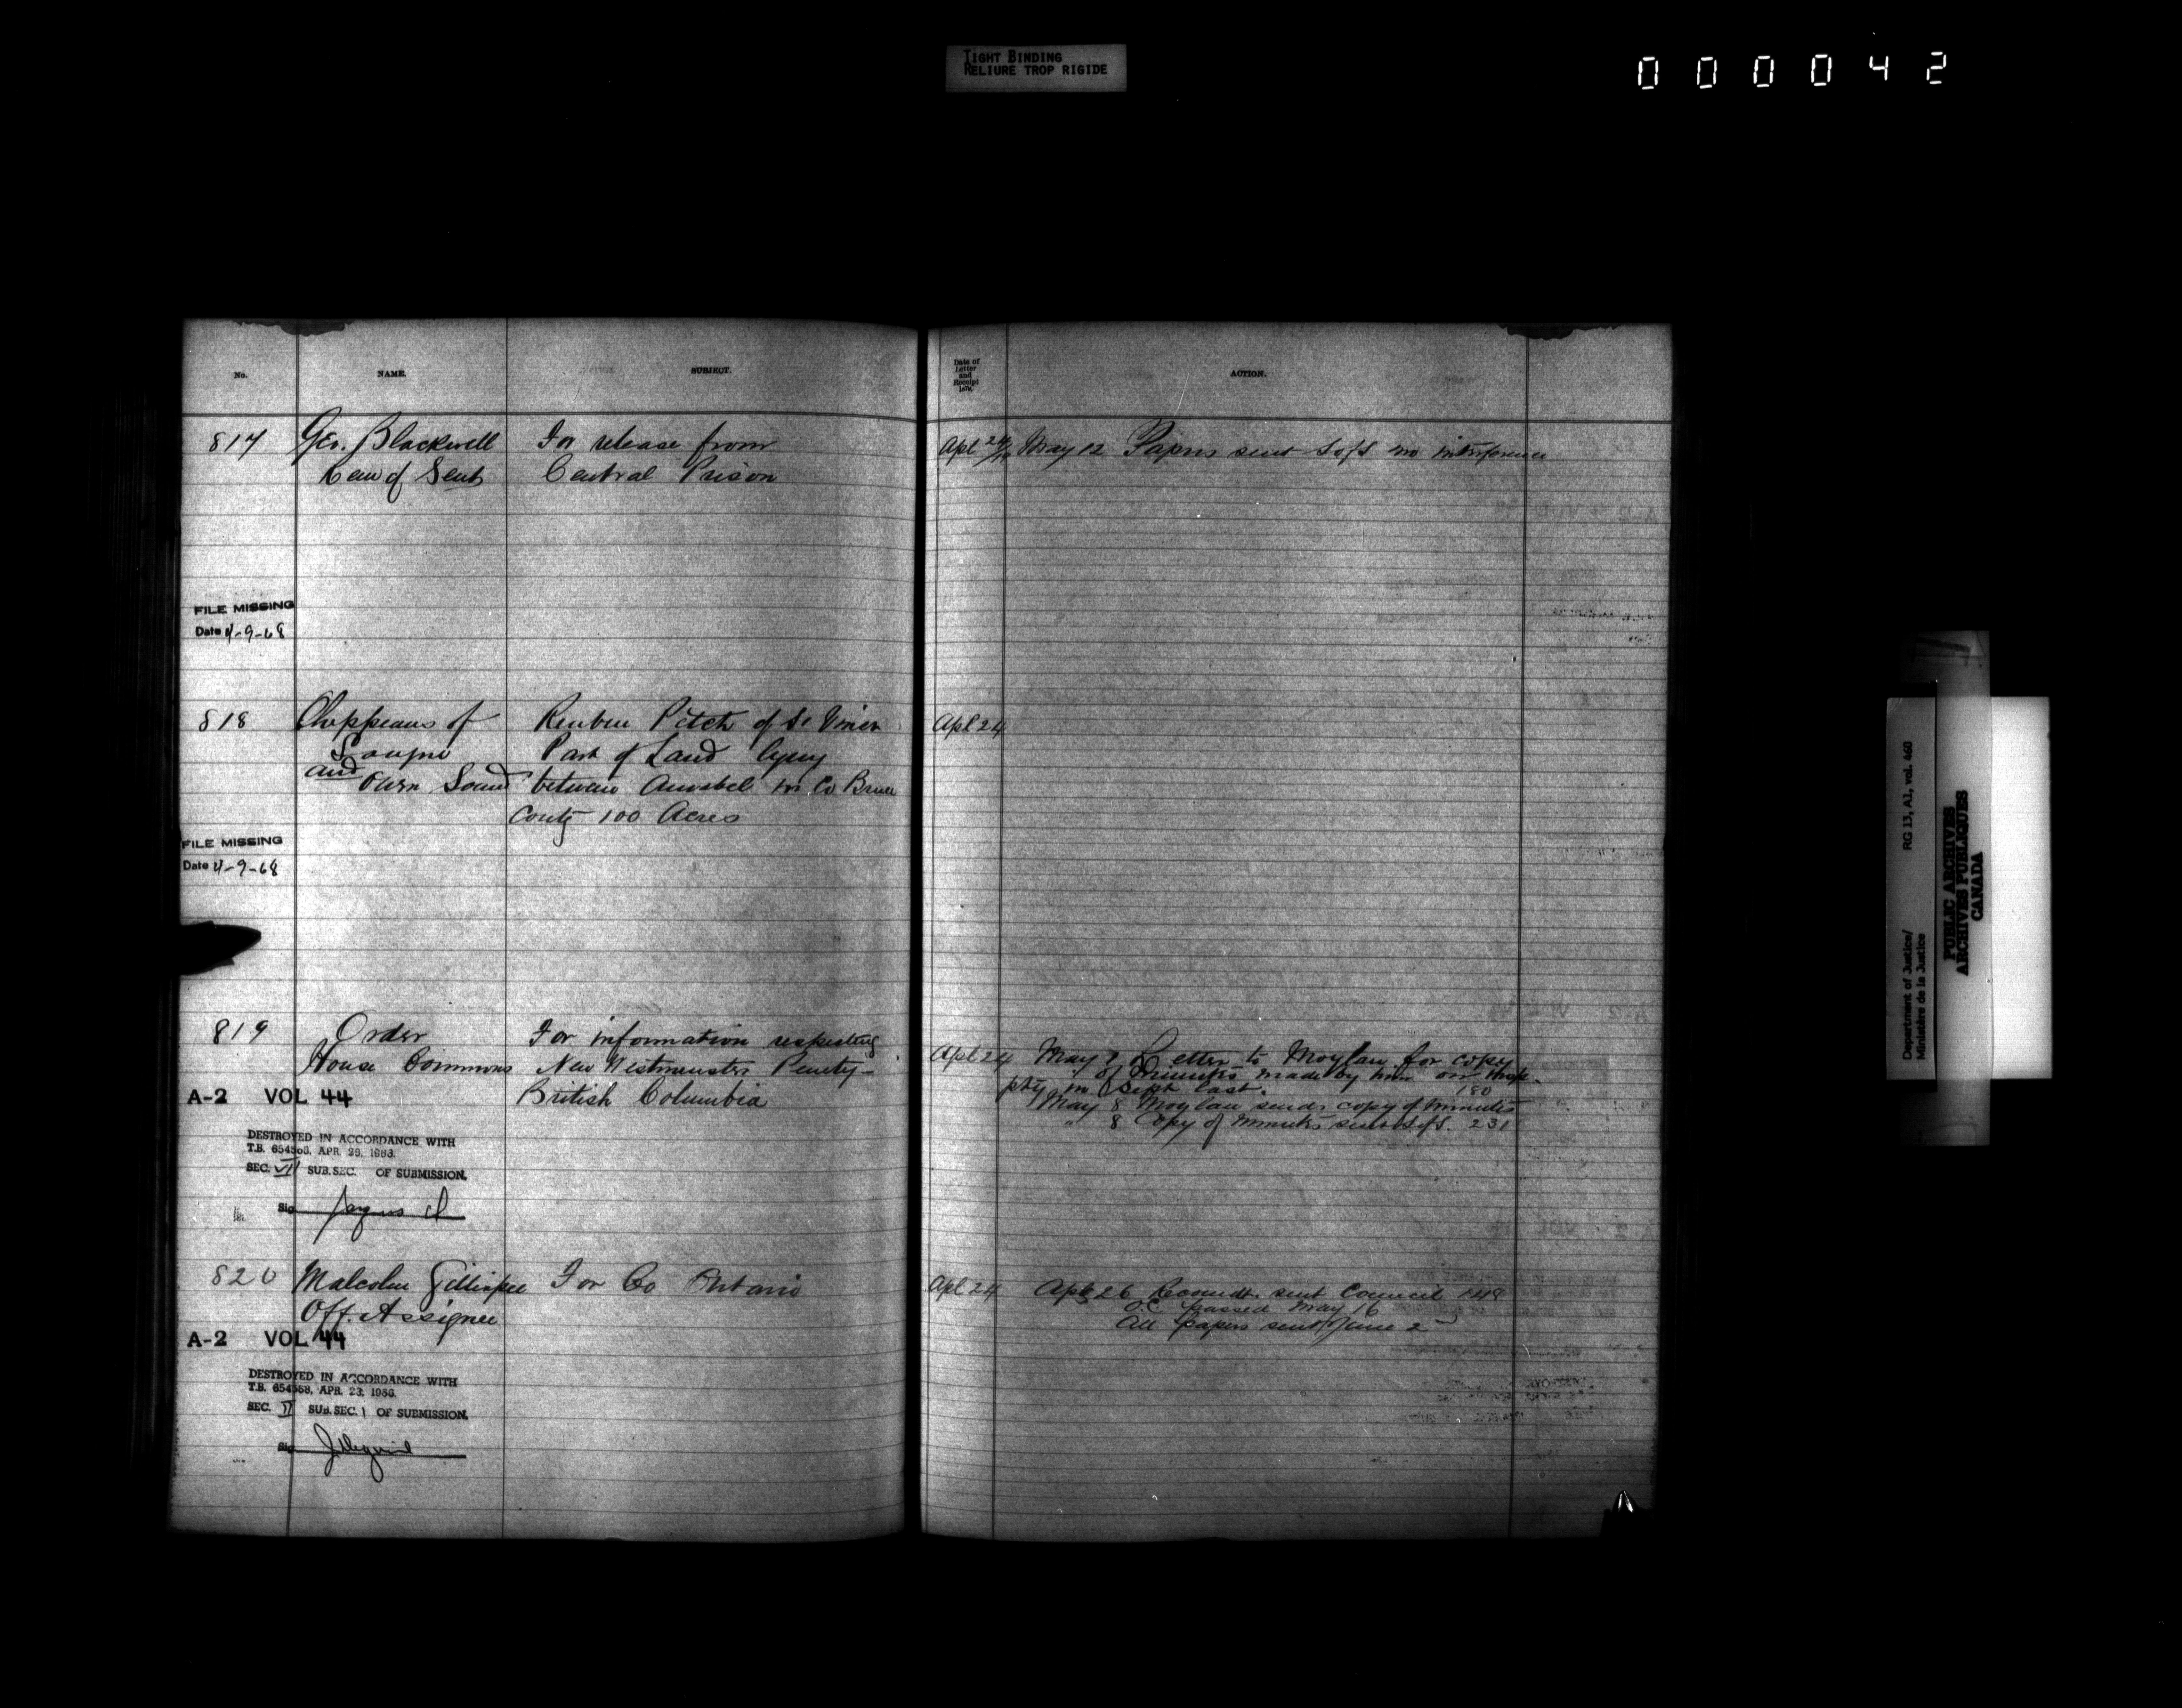 TIGHT BINDING
RELIURE TROP RIGIDE
000042
No.
NAME.
SUBJECT.
Date of
Letter
and
Receipt
ACTION.
817 Geo. Blackwell For release from
of Sent Central Prison
Apl 24 May 12 Papers sent SofS no interference
FILE MISSING
Date 4-9-68
818 Chippeaus of Reuben Pitch of
and Part of Land lying
Owen Sound between Amabel Co Bruce
Contg 100 Acres
Apl 24
FILE MISSING
Date 4-9-68
819 Order For information respecting
House Commons New Westminster Penety
British Columbia
Apl 24 May 7 Letter to Moylan for copy
of minutes made by him on
pty in Sept last. 180
May 8 Moylan sends copy of minutes
" 8 Copy of minutes sent SofS. 231
A-2 VOL 44
DESTROYED IN ACCORDANCE WITH
T.B. APR.
SEC. VII SUB.SEC. OF SUBMISSION.
Sig
820 Malcolm Gillespie For Co Ontario
Off. Assignee
Apl 24 Apl 26 Recomdt. sent Council 148
O.C. passed May 16
All papers sent June 2
A-2 VOL 44
DESTROYED IN ACCORDANCE WITH
T.B. APR. 23,
SEC. II SUB.SEC. 1 OF SUBMISSION.
Sig
Department of Justice/ RG 13, A1, vol. 460
Ministère de la Justice
PUBLIC ARCHIVES
ARCHIVES PUBLIQUES
CANADA